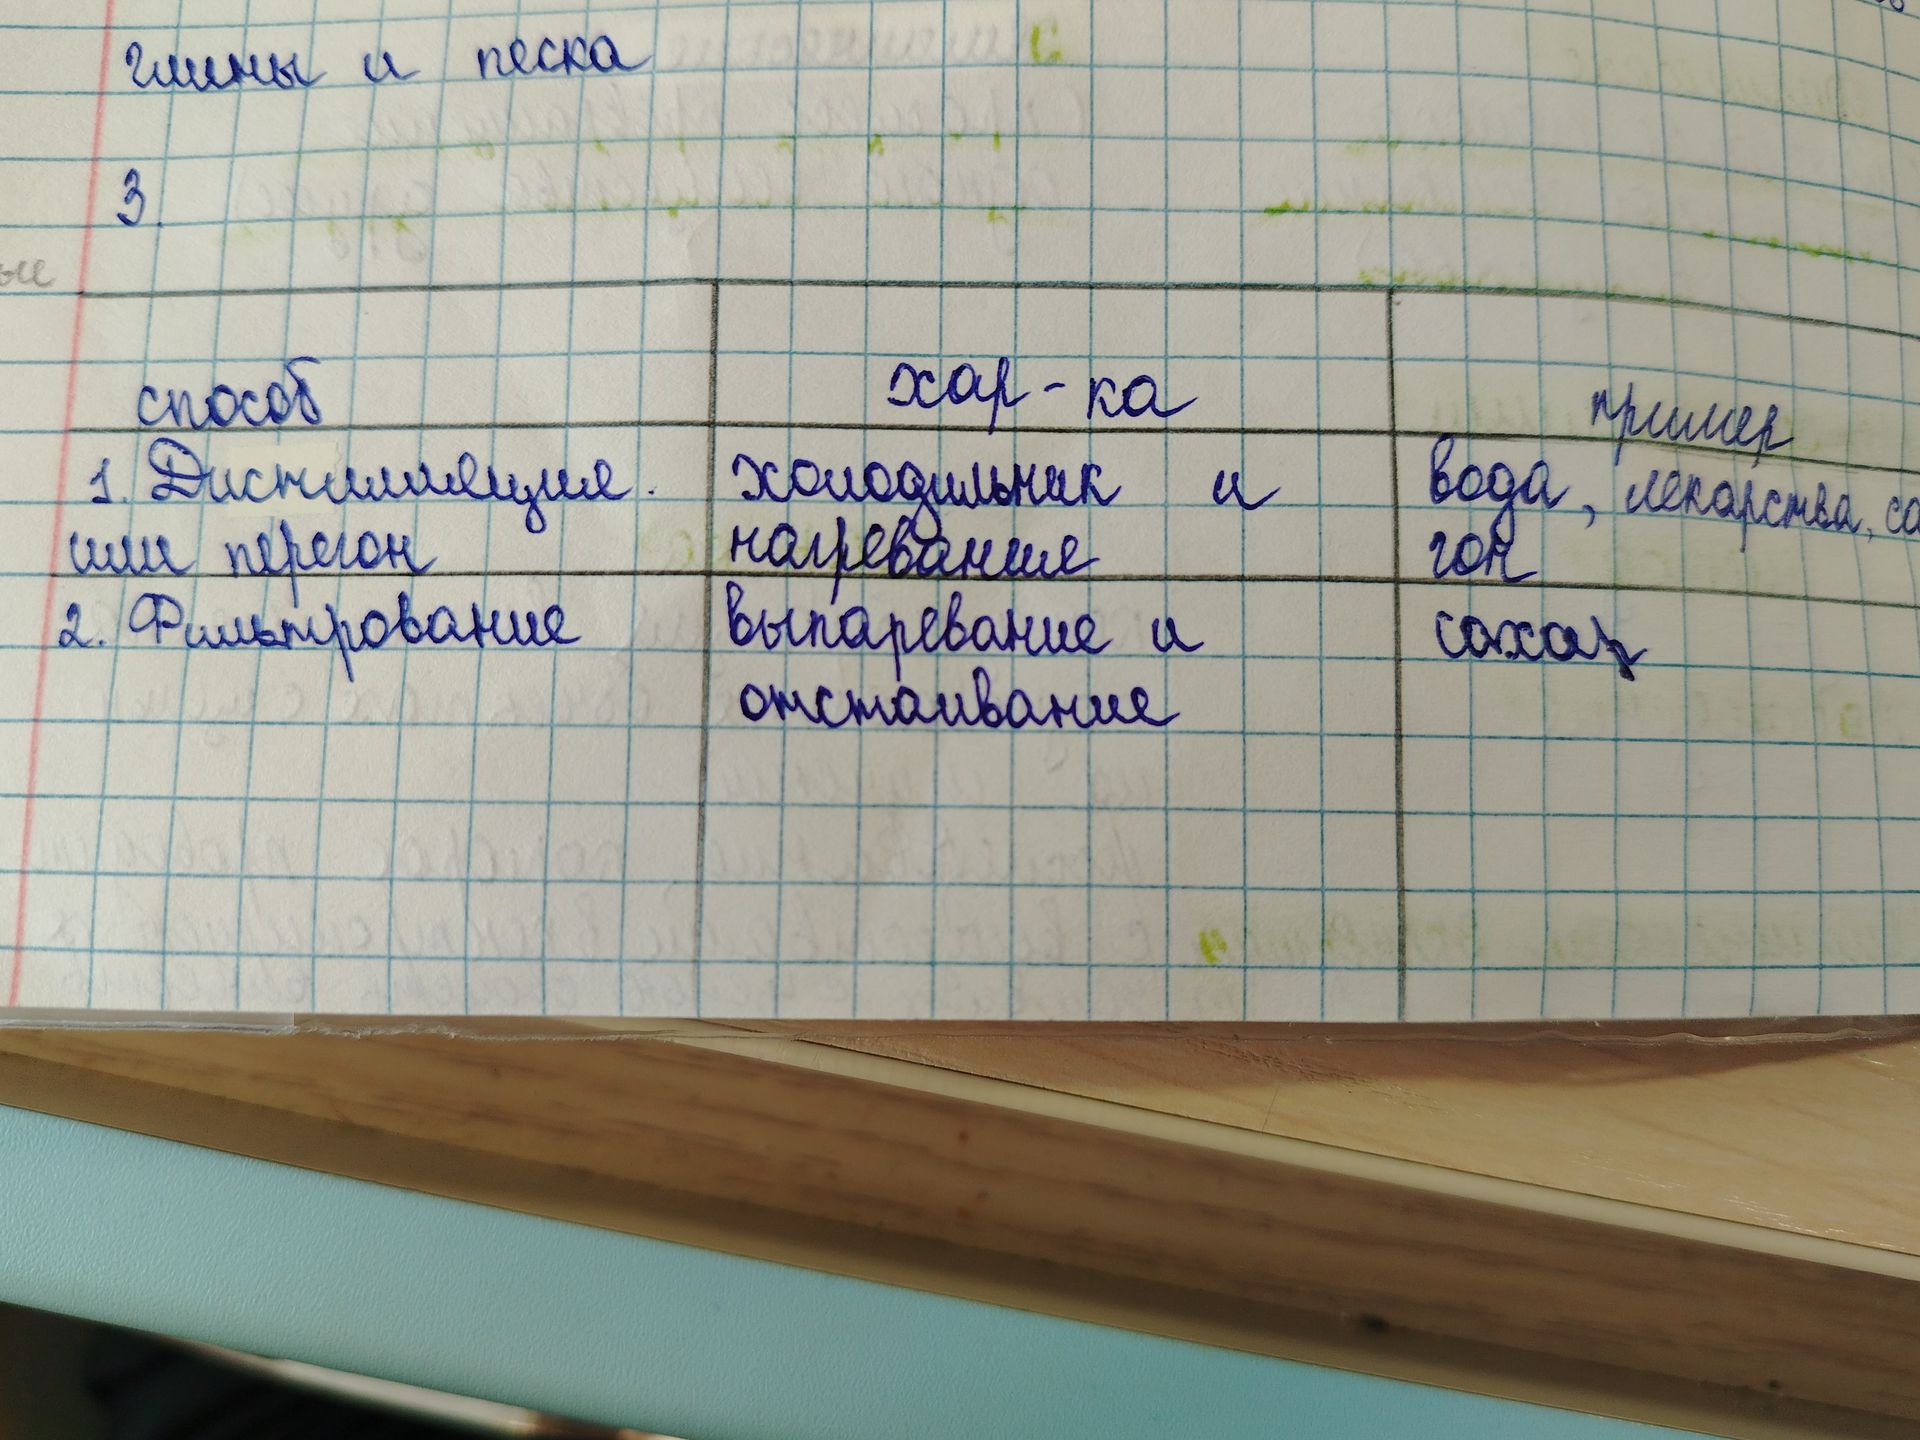 глины и песка
3.
способ хар-ка пример
1. Дистилляция. холодильник и вода, лекарства, са
или перегон нагревание гон
2. Фильтрование выпаревание и сахар
отстаивание